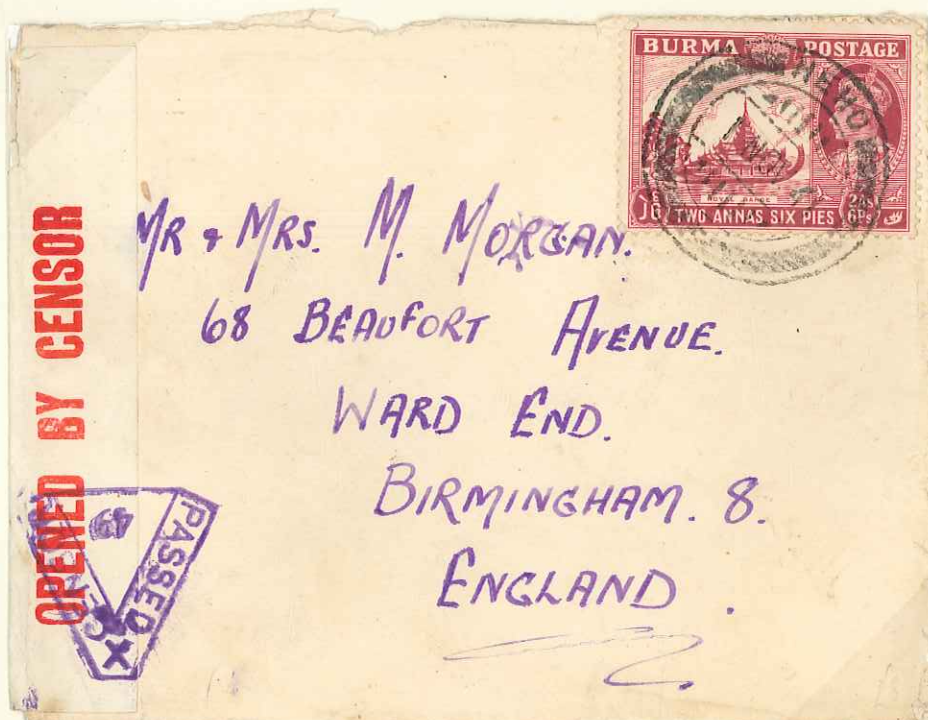 BURMA POSTAGE
ROYAL BARGE
2AS 6PS
TWO ANNAS SIX PIES
OPENED BY CENSOR
PASSED X
49
MR & MRS. M. MORGAN.
68 BEAUFORT AVENUE.
WARD END.
BIRMINGHAM. 8.
ENGLAND.